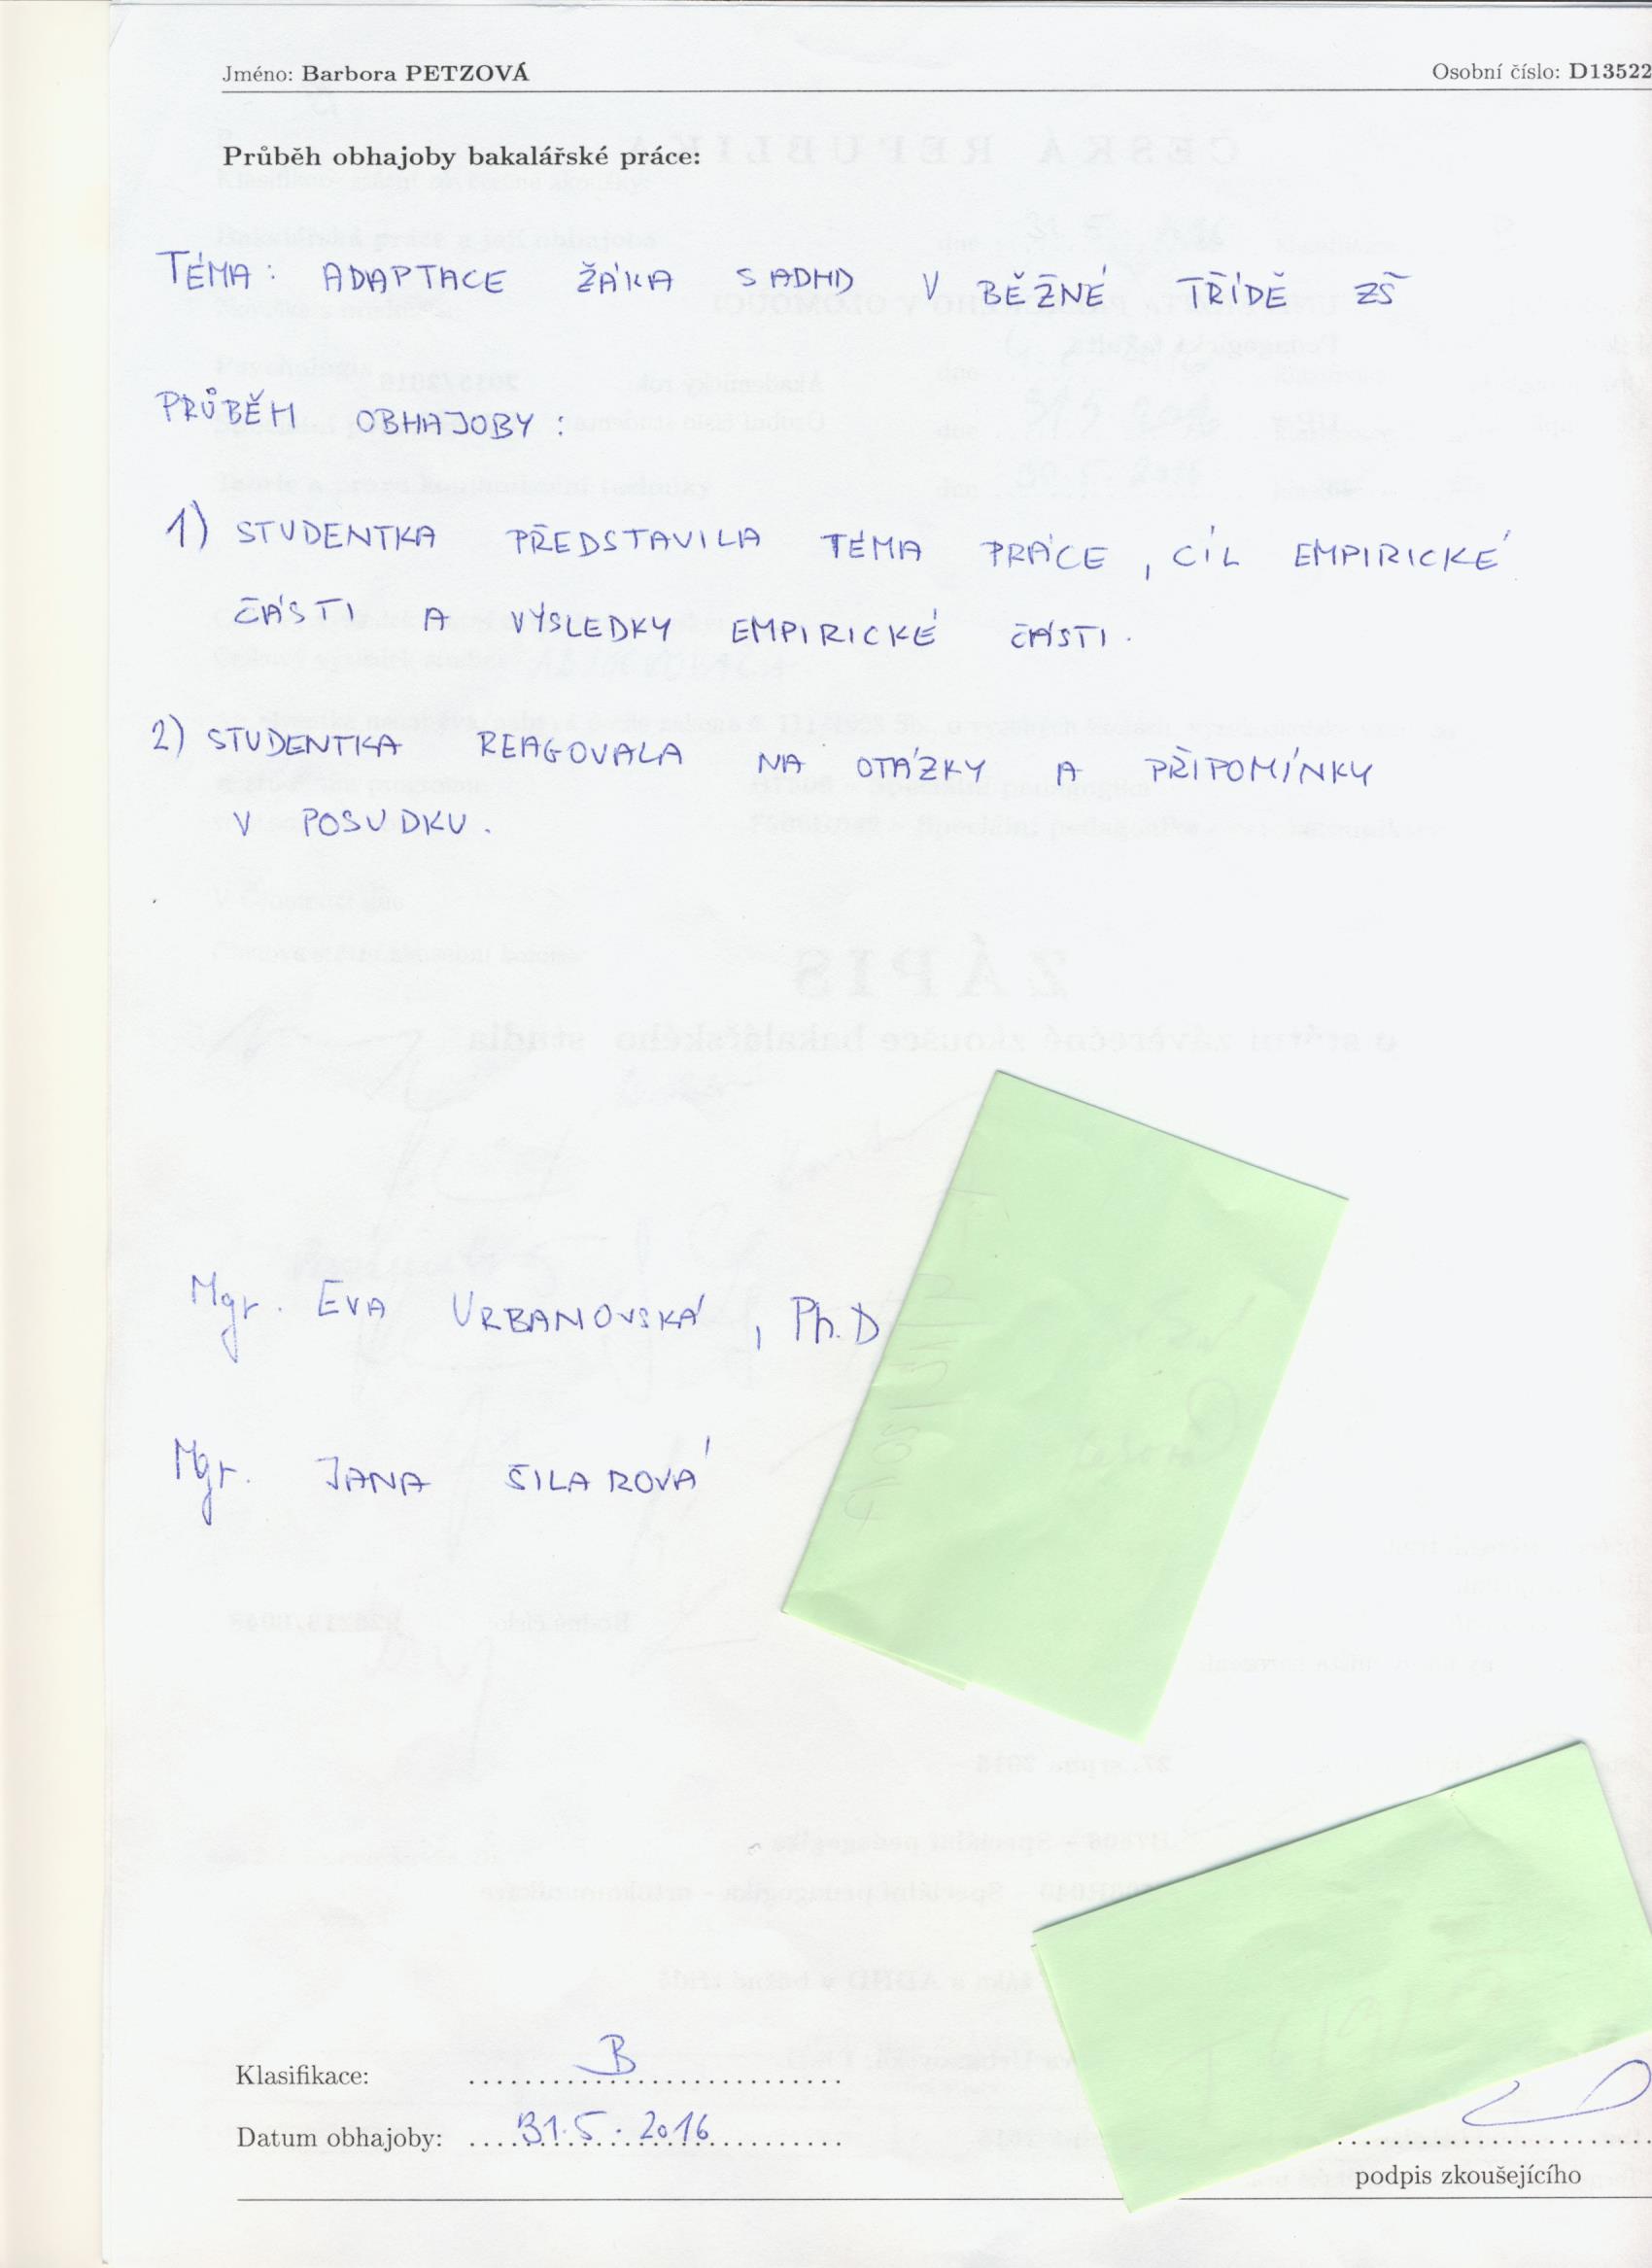 Jméno: Barbora PETZOVÁ Osobní číslo: D13522
Průběh obhajoby bakalářské práce:
TÉMA: ADAPTACE ŽÁKA S ADHD V BĚŽNÉ TŘÍDĚ ZŠ
PRŮBĚH OBHAJOBY:
1) STUDENTKA PŘEDSTAVILA TÉMA PRÁCE, CÍL EMPIRICKÉ
ČÁSTI A VÝSLEDKY EMPIRICKÉ ČÁSTI.
2) STUDENTKA REAGOVALA NA OTÁZKY A PŘIPOMÍNKY
V POSUDKU.
Mgr. EVA URBANOVSKÁ, Ph.D
Mgr. JANA SILAROVÁ
Klasifikace: B
Datum obhajoby: 31.5.2016
podpis zkoušejícího